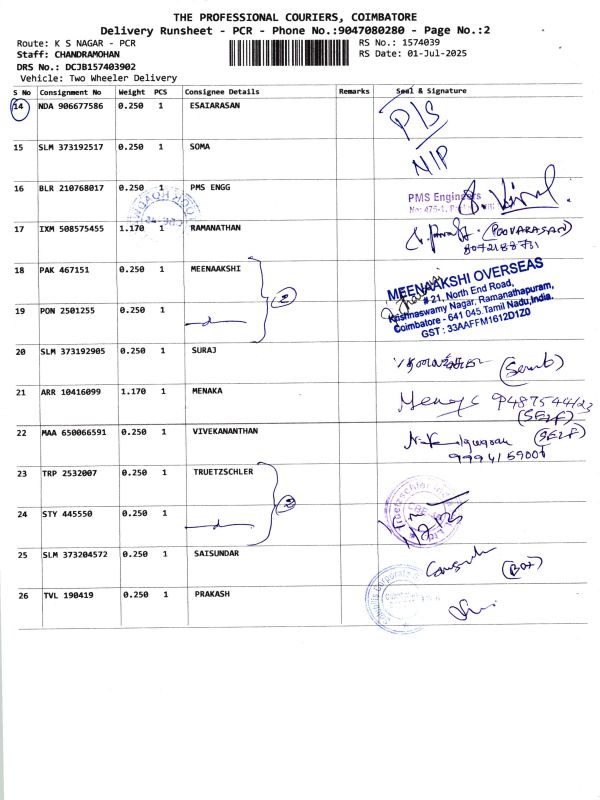 THE PROFESSIONAL COURIERS, COIMBATORE
Delivery Runsheet - PCR - Phone No.:9047080280 - Page No.:2
Route: K S NAGAR - PCR RS No.: 1574039
Staff: CHANDRAMOHAN RS Date: 01-Jul-2025
DRS No.: DCJB157403902
Vehicle: Two Wheeler Delivery
S No Consignment No Weight PCS Consignee Details Remarks Seal & Signature
14 NDA 906677586 0.250 1 ESAIARASAN P/S
15 SLM 373192517 0.250 1 SOMA N/P
16 BLR 210768017 0.250 1 PMS ENGG PMS Engineers
17 IXM 508575455 1.170 1 RAMANATHAN (POOVARASAN)
18 PAK 467151 0.250 1 MEENAAKSHI 2 MEENAAKSHI OVERSEAS
#21, North End Road,
Krishnaswamy Nagar, Ramanathapuram,
Coimbatore - 641 045. Tamil Nadu, India.
GST : 33AAFFM1612D1Z0
19 PON 2501255 0.250 1
20 SLM 373192905 0.250 1 SURAJ
21 ARR 10416099 1.170 1 MENAKA
(SELF)
22 MAA 650066591 0.250 1 VIVEKANANTHAN (SELF)
23 TRP 2532007 0.250 1 TRUETZSCHLER 2
24 STY 445550 0.250 1
25 SLM 373204572 0.250 1 SAISUNDAR (BOX)
26 TVL 190419 0.250 1 PRAKASH